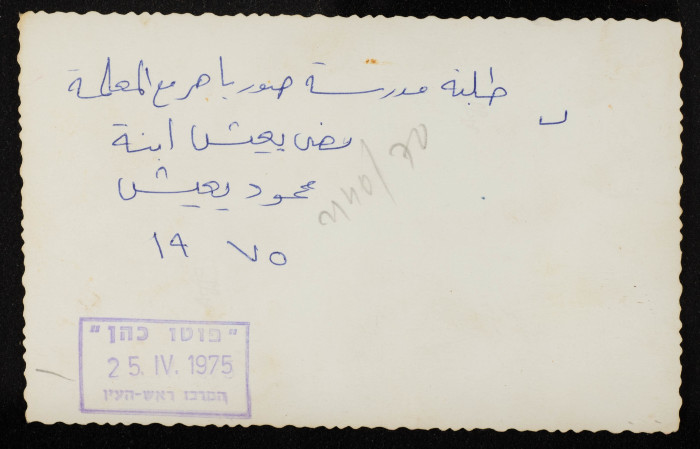 طلبة مدرسة صور باهر مع المعلمة
يعيش ابنة
محمود يعيش
١٩ ٧٥
"פוטו כהן"
25. IV. 1975
המרכז ראש-העין